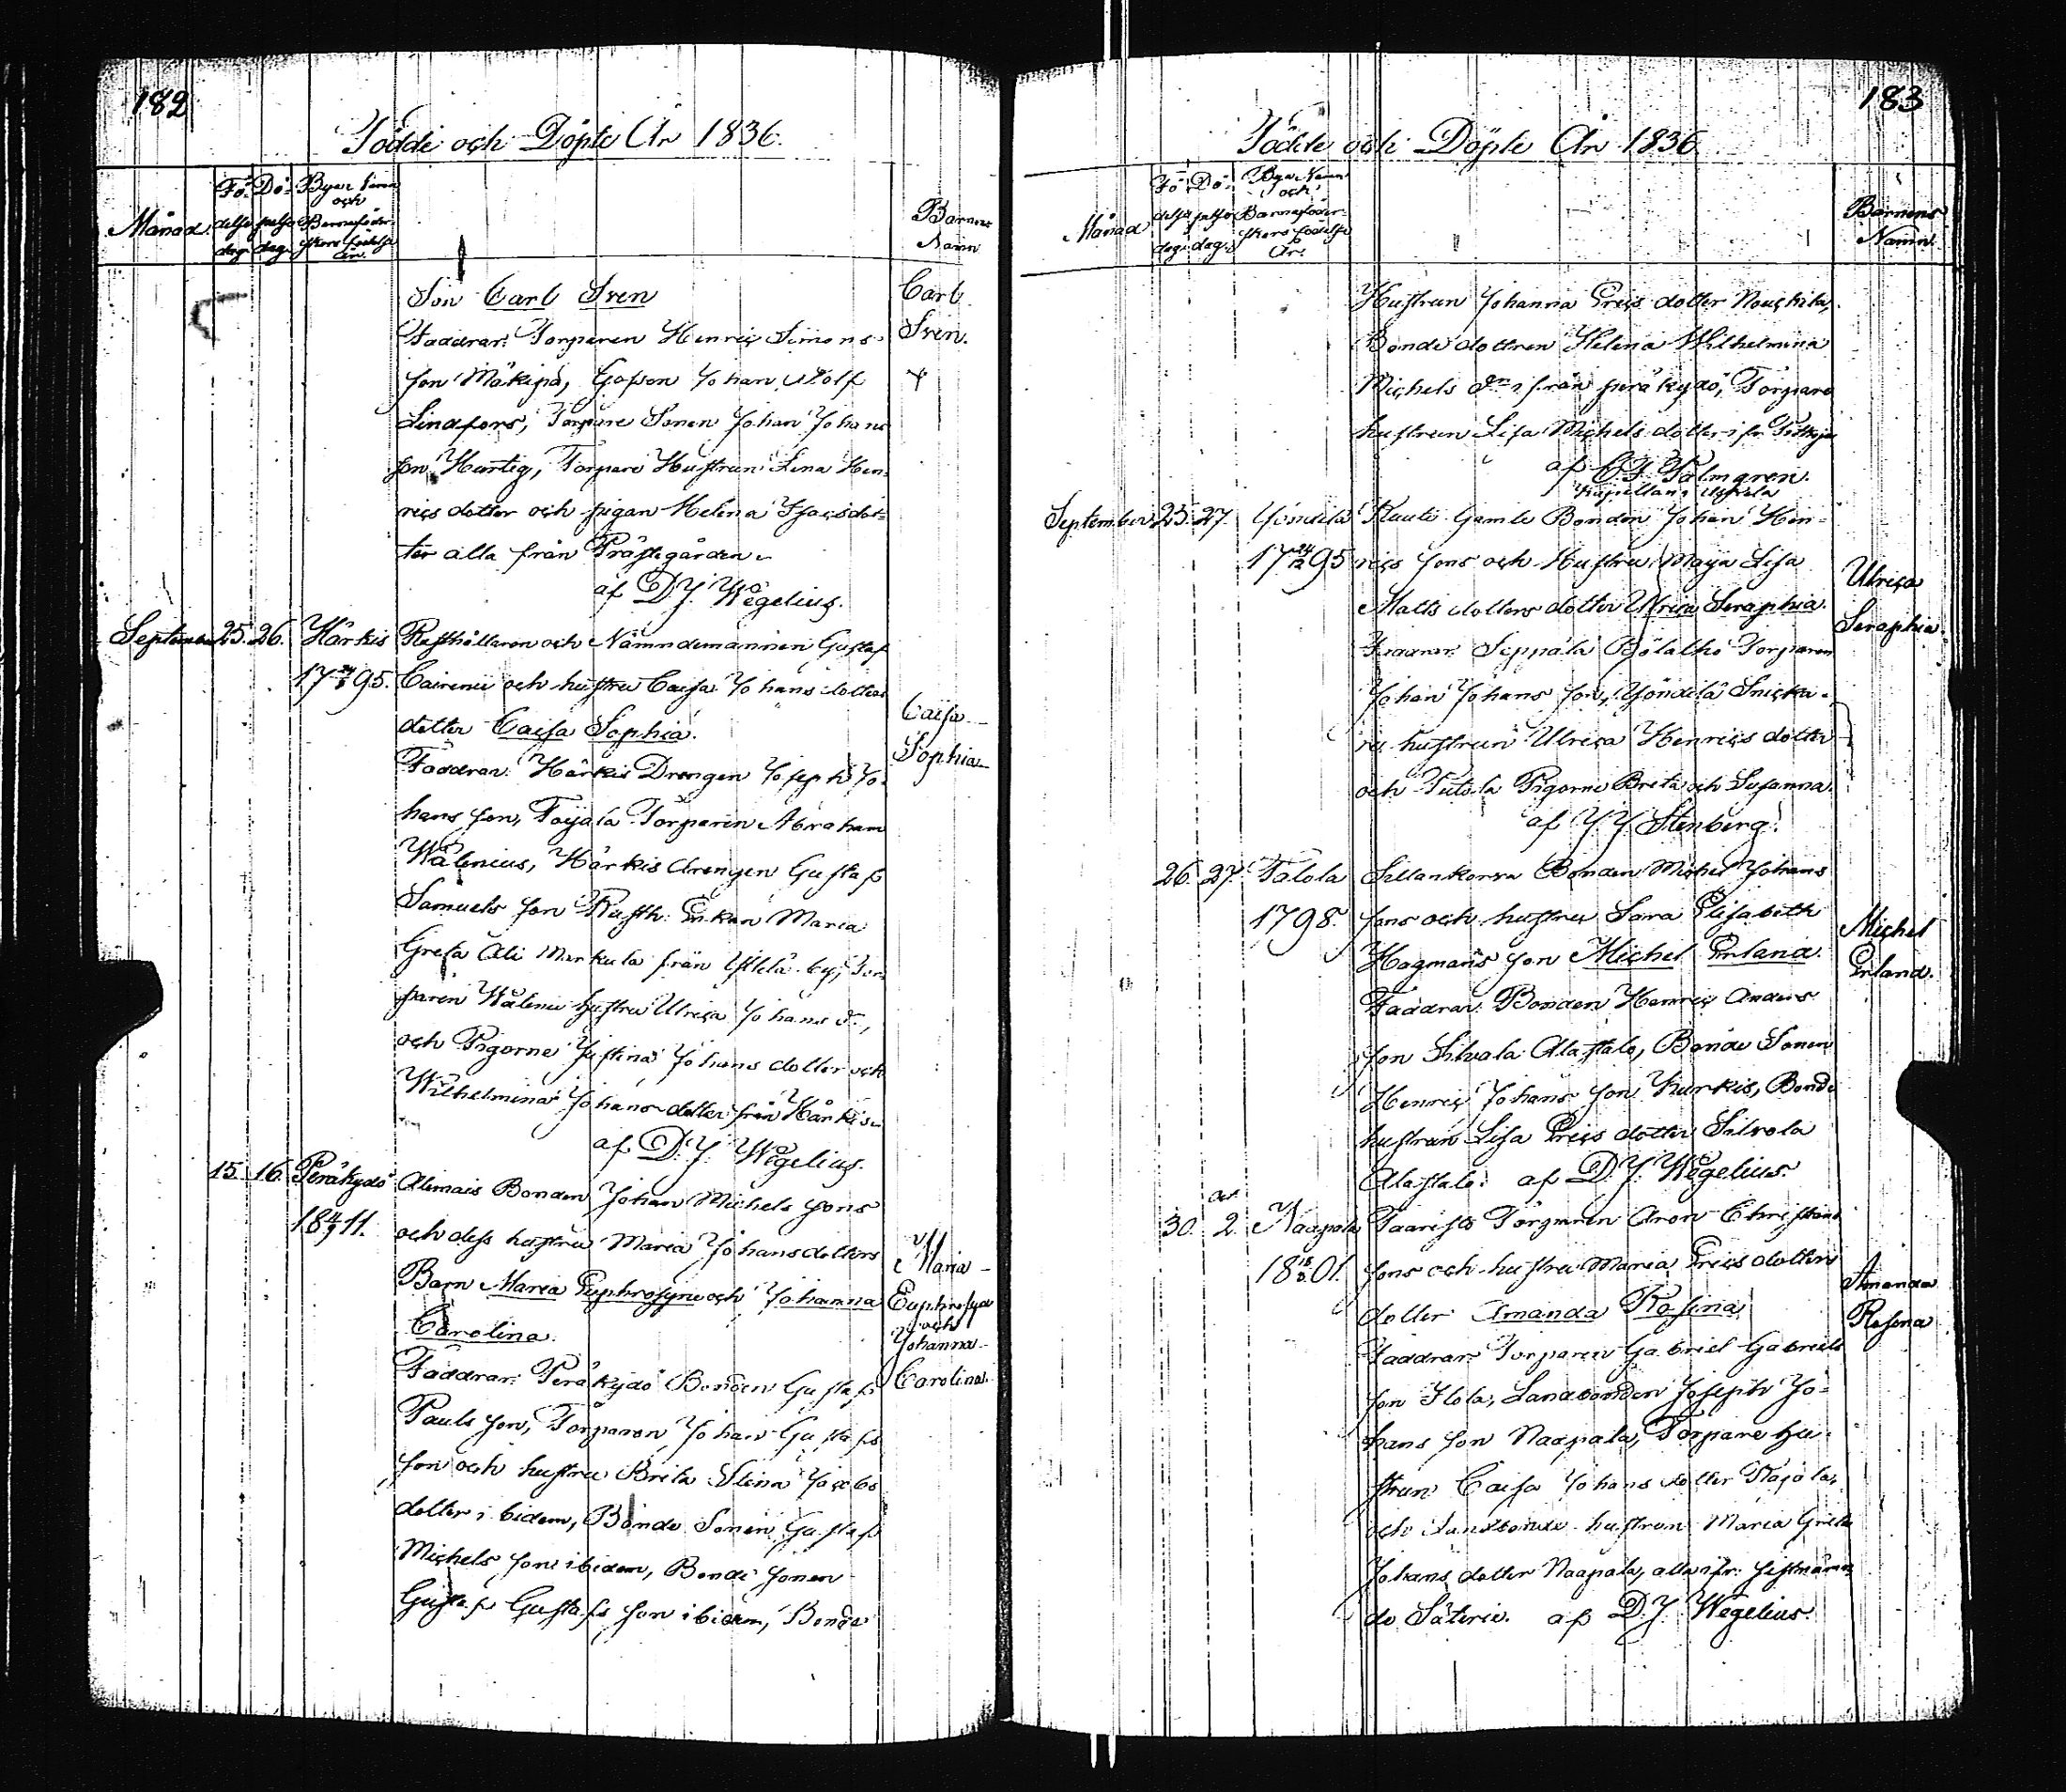 182
Födde och Döpte År 1836.
Månad.
Fö- delse dag.
Dö- pelse dag.
Byar namn och Barnaföder- skors födelse År.
Barnens Namn
Son Carl Sven
Carl Sven.
Faddrar: Torparen Henric Simons
son Mäkipä, Johan Adolf
Lindfors, Torpare Sonen Johan Johans
son Hurtig, Torpare Hustrun Lena Hen-
rics dotter och pigan Helena Isacsdot-
ter alla från Prästegården.
af D. J. Wegelius.
September 25. 26. Härkis Rusthållaren och Nämndemannen Gustaf
1795. Cairenii och hustru Caisa Johans dotters
dotter Caisa Sophia.
Caisa Sophia
Faddrar: Härkis Drengen Joseph Jo-
hans son, Tojala Torparen Abraham
Wälenius, Härkis drengen Gustaf
Samuels son Rusth: Enkan Maria
Greta Ali Markula från Yllilä by, Tor-
paren Walenii hustru Ulrica Johans d.,
och Pigorne Justina Johans dotter och
Wilhelmina Johans dotter från Härkis.
af D. J. Wegelius.
15. 16. Peräkydö Alimais Bonden Johan Michels sons
18 11. och dess hustru Maria Johansdotters
Barn Maria Euphrosyne och Johanna
Carolina.
Maria Euphrosyne och Johanna Carolina.
Faddrar: Peräkydö Bonden Gustaf
Pauls son, Torparen Johan Gustafs
son och hustru Brita Stina Jacobs
dotter ibidem, Bonde Sonen Gustaf
Michels son ibidem, Bonde sonen
Gustaf Gustafs son ibidem, Bonde
183
Födde och Döpte År 1836.
Månad
Fö- delse dag.
Dö- pelse dag.
Byar Namn och Barnaföder- skors födelse År.
Barnens Namn.
Hustrun Johanna Erics dotter
Bonde dottren Helena Wilhelmina
Michels dr från peräkydö, Torpare
hustrun Lisa Michels dotter
af Palmgren.
Kapellan i
September 23. 27. Yöndilä Klauti Gamle Bonden Johan Hen-
1795 rics sons och Hustru Maja Lisa
Matts dotters dotter Ulrica Seraphia.
Ulrica Seraphia
Faddrar: Seppälä Torparen
Johan Johans son, Yöndilä Snicka-
re hustrun Ulrica Henrics dotter
och Tutola Pigorne Breta och Susanna.
af J. J. Stenberg.
26. 27. Talola Sillankorva Bonden Michel Johans
1798. sons och hustru Sara Elisabeth
Hagmans son Michel Erland.
Michel Erland.
Faddrar: Bonden Henric Anders
son Silvola Alastalo, Bonde Sonen
Henric Johans son Kurkis, Bonde
hustrun Lisa Erics dotter Silvola
Alastalo. af D. J. Wegelius.
30. Oct. 2. Naapala Torparen Aron Christians
18 01. sons och hustru Maria Erics dotters
dotter Amanda Rosina.
Amanda Rosina
Faddrar: Torparen Gabriel Gabriels
son Ilola, Landbonden Joseph Jo-
hans son Naapala, Torpare hu-
strun Caisa Johans dotter
och Landbonde hustrun Maria Greta
Johans dotter Naapala, alla
Säterie. af D. J. Wegelius.